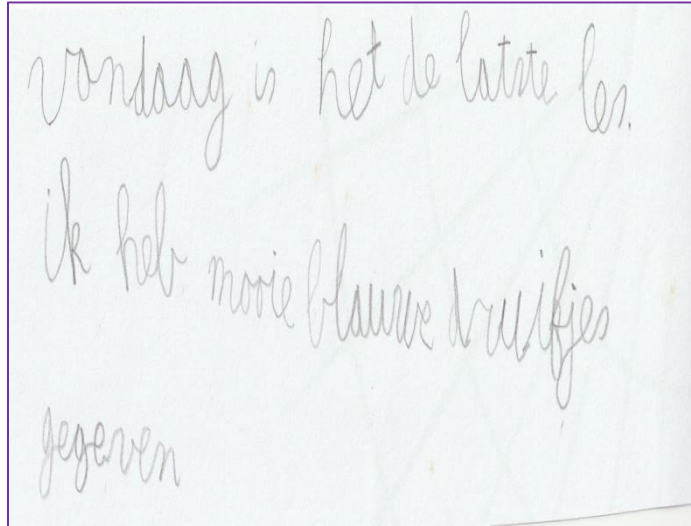 vandaag is het de latste les.
ik heb mooie blauwe druifjes
gegeven